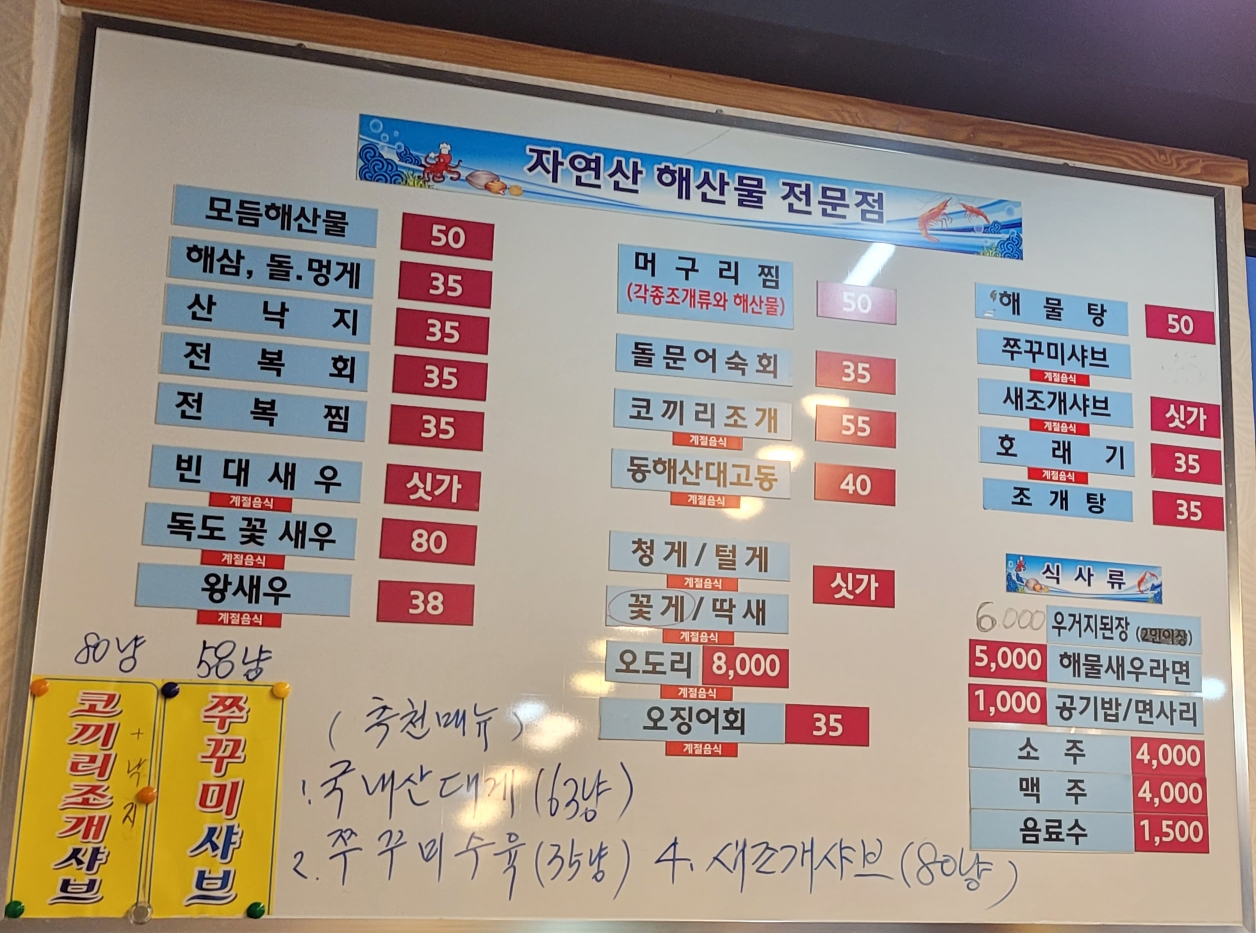 자연산 해산물 전문점
모듬해산물 50
해삼, 돌.멍게 35
산낙지 35
전복회 35
전복찜 35
빈대새우 싯가
계절음식
독도꽃새우 80
계절음식
왕새우 38
계절음식
머구리찜 50
(각종조개류와 해산물)
돌문어숙회 35
코끼리조개 55
계절음식
동해산대고동 40
계절음식
청게/털게 싯가
계절음식
꽃게/딱새
계절음식
오도리 8,000
계절음식
오징어회 35
계절음식
해물탕 50
쭈꾸미샤브
계절음식
새조개샤브 싯가
계절음식
호래기 35
계절음식
조개탕 35
식사류
6,000 우거지된장 (2인이상)
5,000 해물새우라면
1,000 공기밥/면사리
소주 4,000
맥주 4,000
음료수 1,500
80냥
코끼리조개샤브
+낙지
58냥
쭈꾸미샤브
(추천메뉴)
1. 국내산대게 (63냥)
2. 쭈꾸미수육 (35냥) 4. 새조개샤브 (80냥)